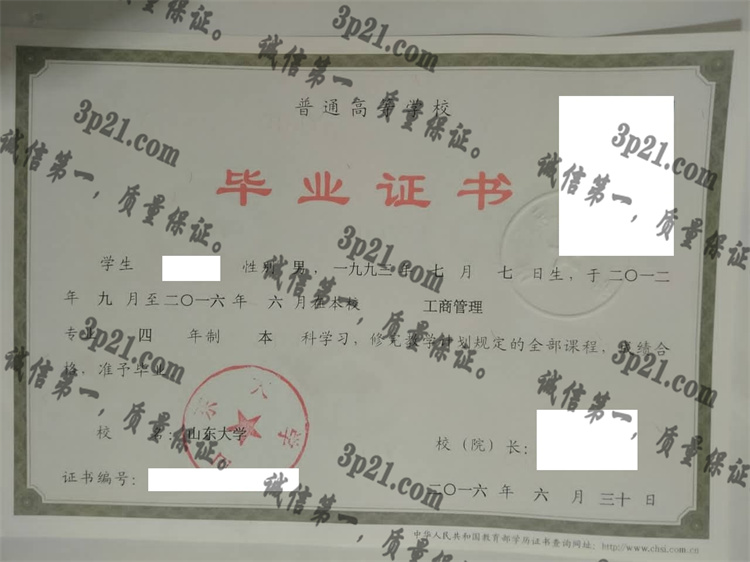 普通高等学校
毕业证书
学生 性别 男，一九九三年 七 月 七 日生，于二〇一二
年 九 月至二〇一六年 六 月在本校 工商管理
专业 四 年制 本 科学习，修完教学计划规定的全部课程，成绩合
格，准予毕业。
校 名：山东大学
校（院）长：
证书编号：
二〇一六 年 六 月 三十 日
中华人民共和国教育部学历证书查询网址：http://www.chsi.com.cn
山东大学
3p21.com
诚信第一，质量保证。
3p21.com
诚信第一，质量保证。
3p21.com
诚信第一，质量保证。
3p21.com
诚信第一，质量保证。
3p21.com
诚信第一，质量保证。
3p21.com
诚信第一，质量保证。
3p21.com
诚信第一，质量保证。
3p21.com
诚信第一，质量保证。